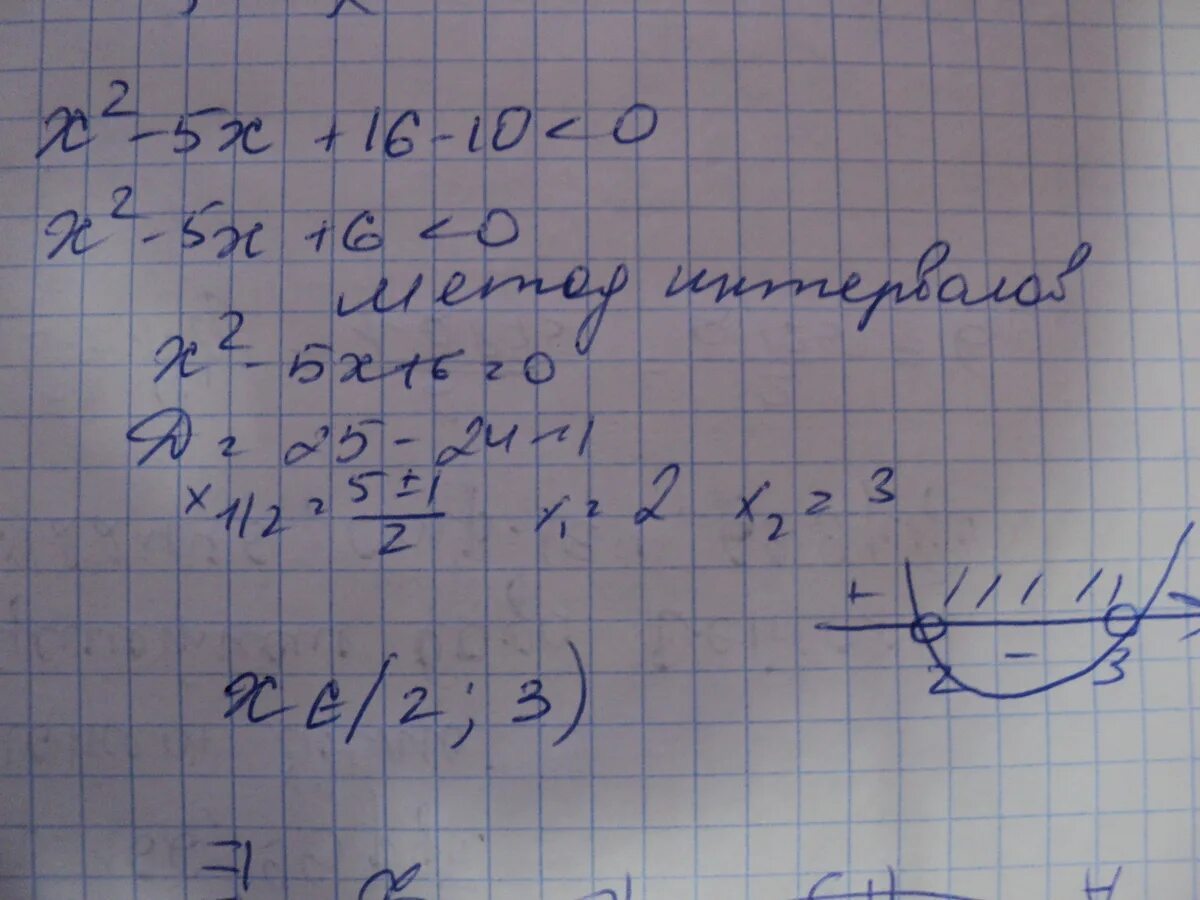 x² - 5x + 16 - 10 < 0
x² - 5x + 6 < 0
метод интервалов
x² - 5x + 6 = 0
D = 25 - 24 = 1
x1/2 = (5 ± 1)/2 x₁ = 2 x₂ = 3
+ -
2 3
x ∈ (2; 3)